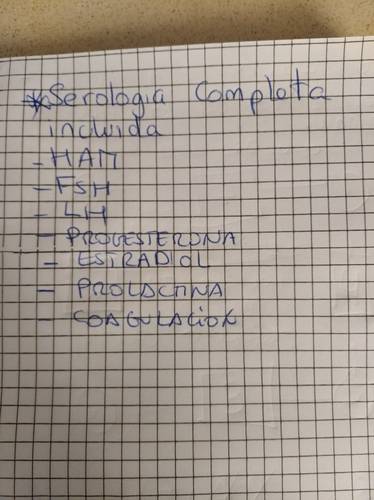 *Serologia Completa
incluida
- HAM
- FSH
- LH
- PROGESTERONA
- ESTRADIOL
- PROLACTINA
- COAGULACIÓN